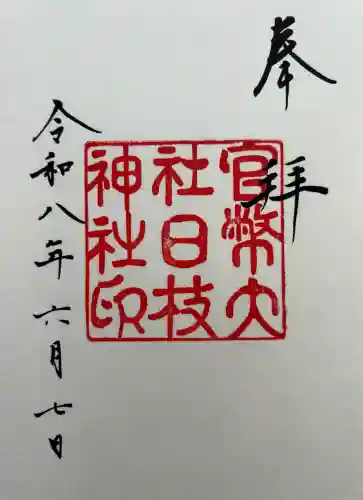 奉拝
官幣大
社日枝
神社印
令和八年六月七日